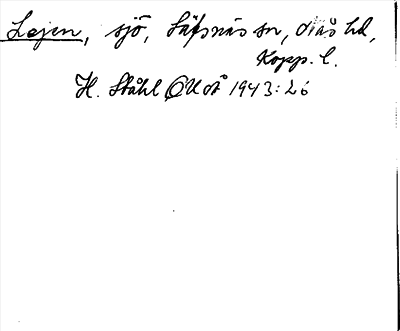 Lejen, sjö, Säfsnäs sn, Nås hd,
Kopp. l.
H. Ståhl OUÅ 1943: 26